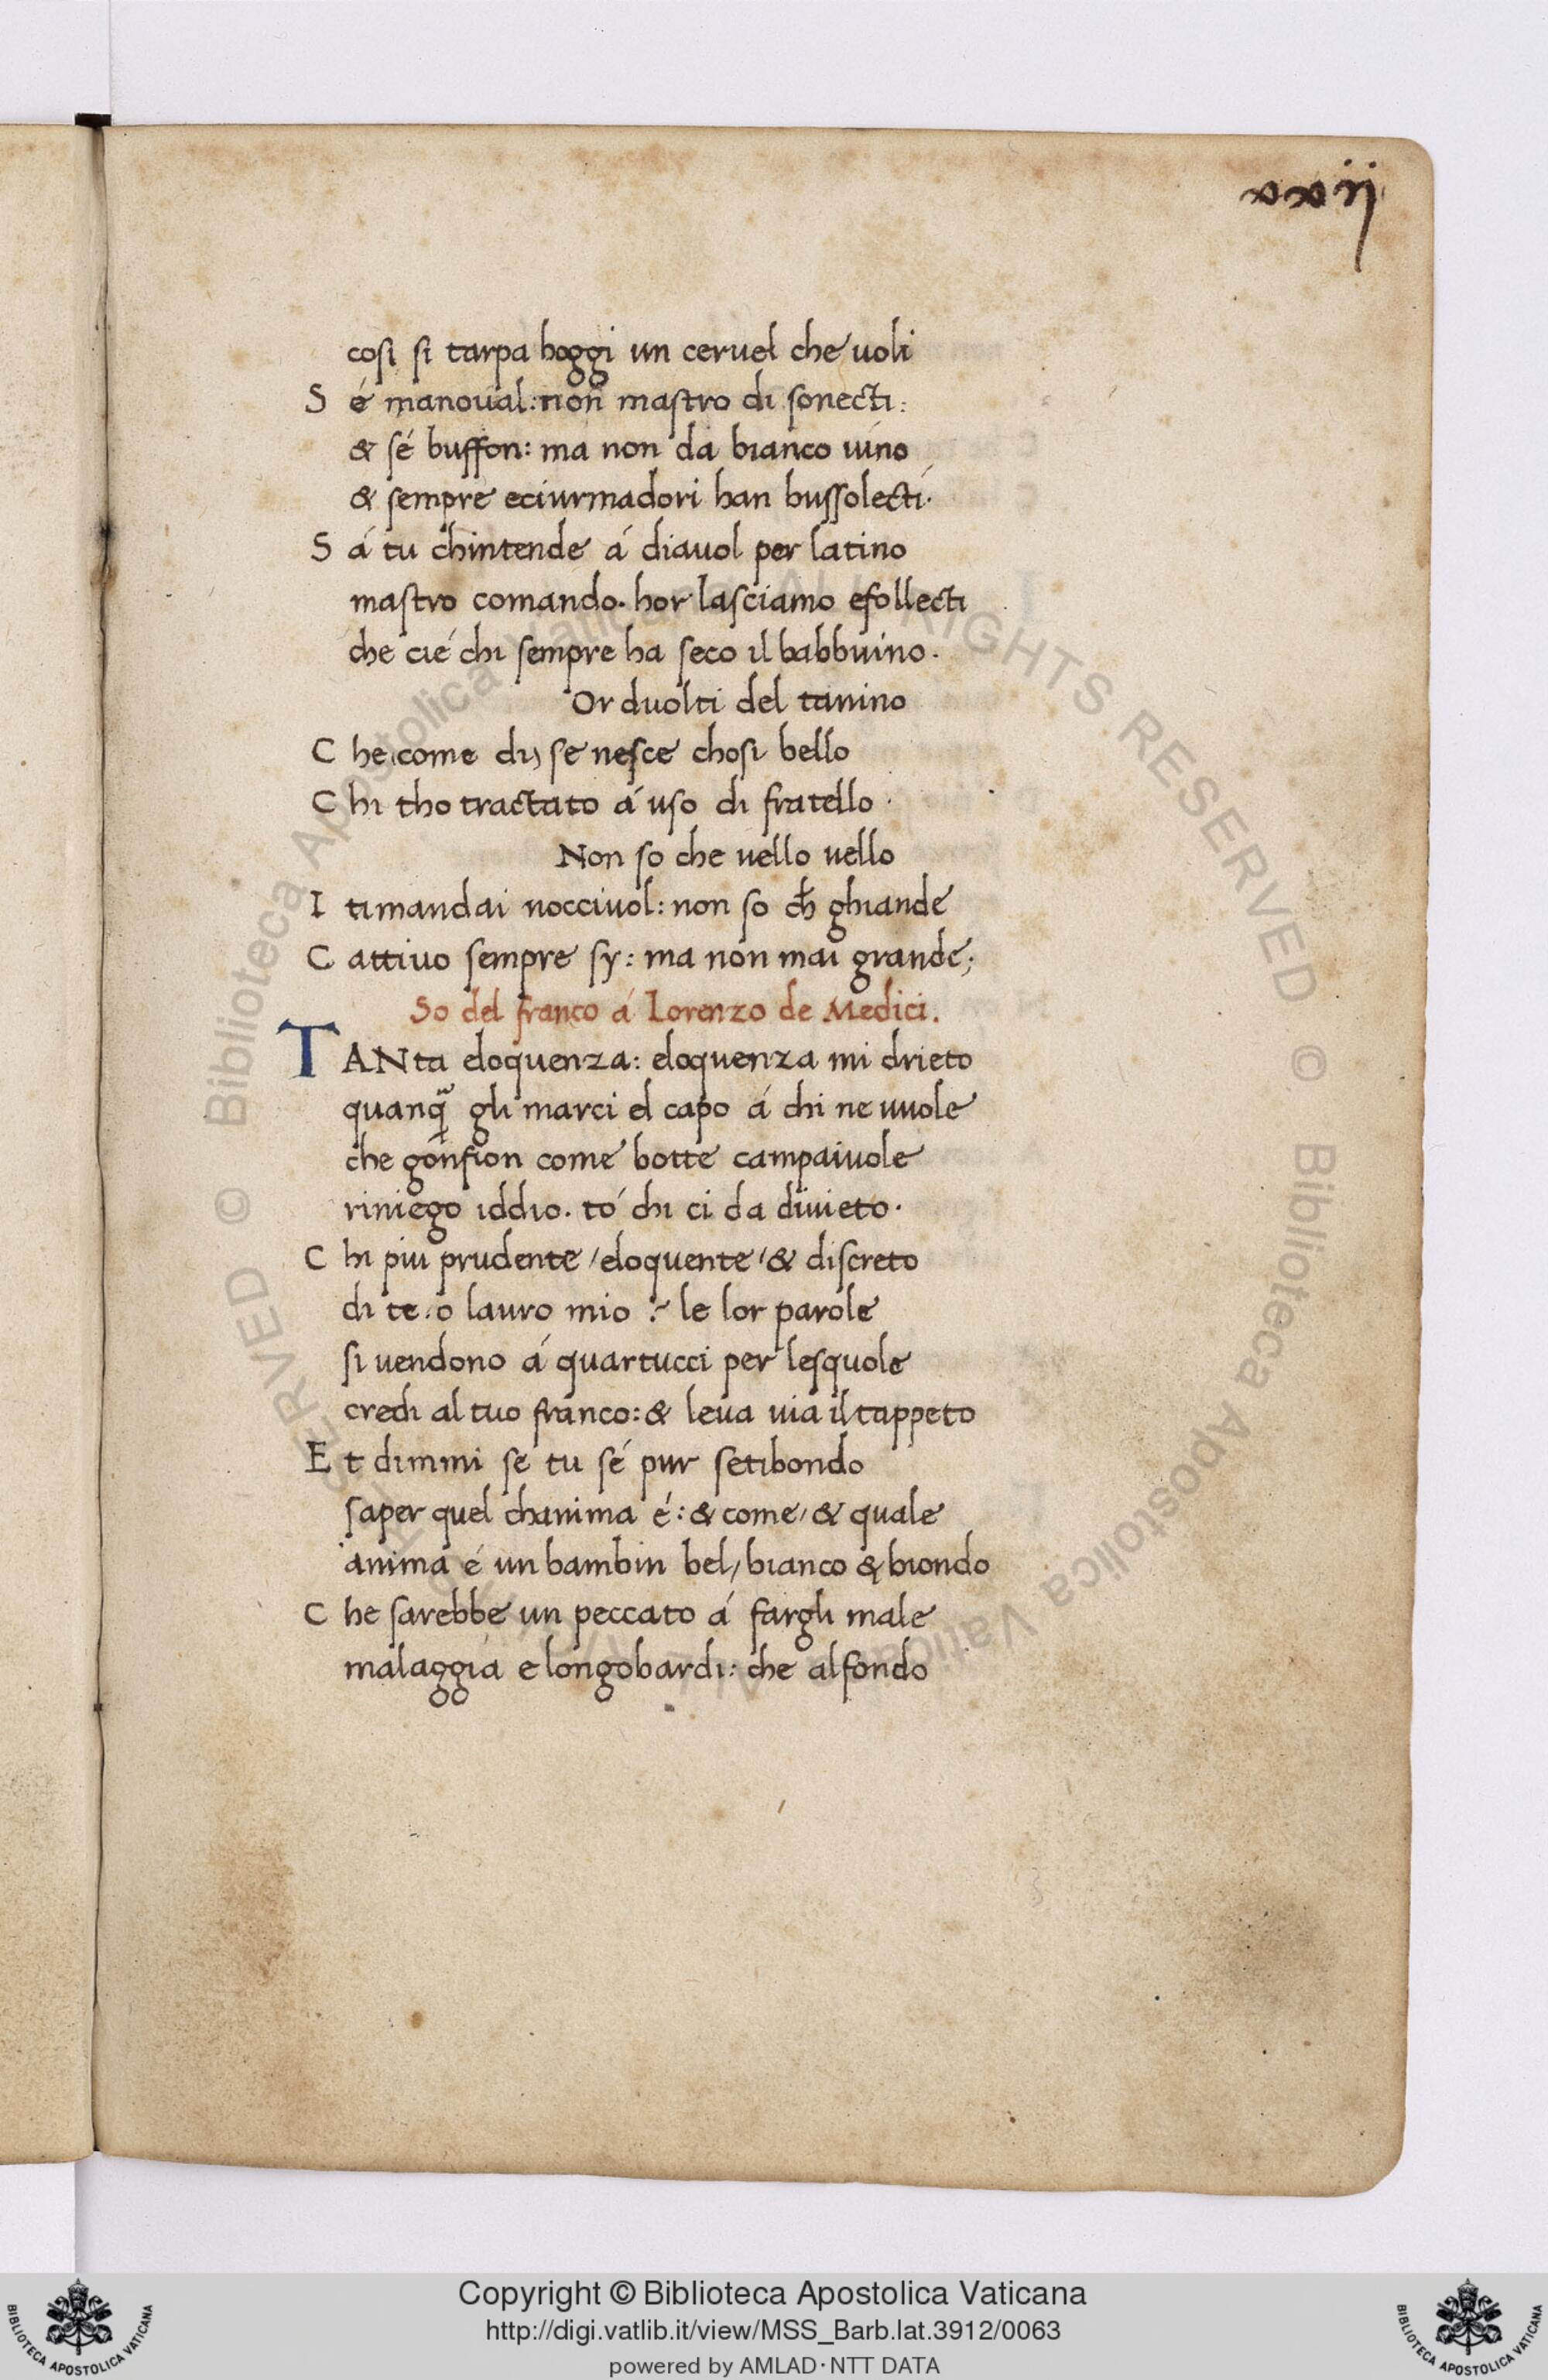 xxij
cosi si tarpa hoggi un ceruel che uoli
S é manoual: non mastro di sonecti:
& sé buffon: ma non da bianco uino
& sempre eciurmadori han bussolecti.
S á tu chintende á diauol per latino
mastro comando. hor lasciamo efollecti
che cié chi sempre ha seco il babbuino.
Or duolti del tanino
C he come di) se nesce chosi bello
C hi tho tractato á uso di fratello.
Non so che uello uello
I timandai nocciuol: non so ch̄ ghiande
C attiuo sempre sy: ma non mai grande;
So del franco á Lorenzo de Medici.
TANta eloquenza: eloquenza mi drieto
quanq̃ gli marci el capo á chi ne uuole
che gonfion come botte campaiuole
riniego iddio. tó chi ci da diuieto.
C hi piu prudente / eloquente / & discreto
di te. o lauro mio ? le lor parole
si uendono á quartucci per lesquole
credi al tuo franco: & leua uia il tappeto
E t dimmi se tu sé pur setibondo
saper quel chanima é: & come / & quale
anima é un bambin bel / bianco & biondo
C he sarebbe un peccato á fargli male
malaggia e longobardi: che alfondo
© Biblioteca Apostolica Vaticana ALL RIGHTS RESERVED © Biblioteca Apostolica Vaticana ALL RIGHTS RESERVED
Copyright © Biblioteca Apostolica Vaticana
http://digi.vatlib.it/view/MSS_Barb.lat.3912/0063
powered by AMLAD·NTT DATA
BIBLIOTECA APOSTOLICA VATICANA
BIBLIOTECA APOSTOLICA VATICANA